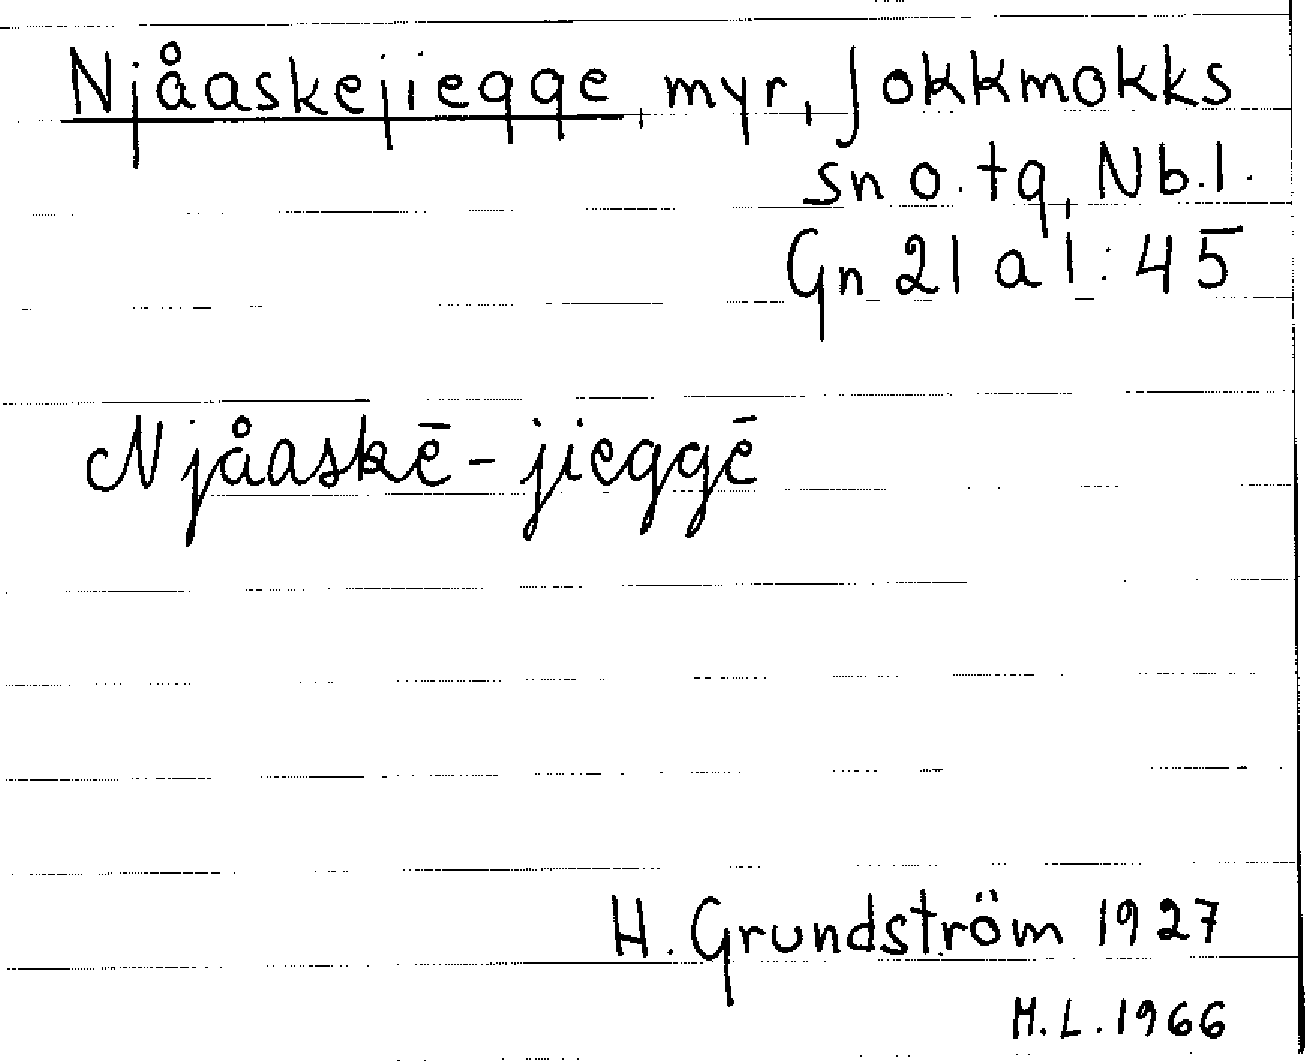 Njåaskejiegge, myr, Jokkmokks
sn o. tg, Nb.l.
Gn 21 a 1:45
Njåaskē-jieggē
H. Grundström 1927
M.L. 1966